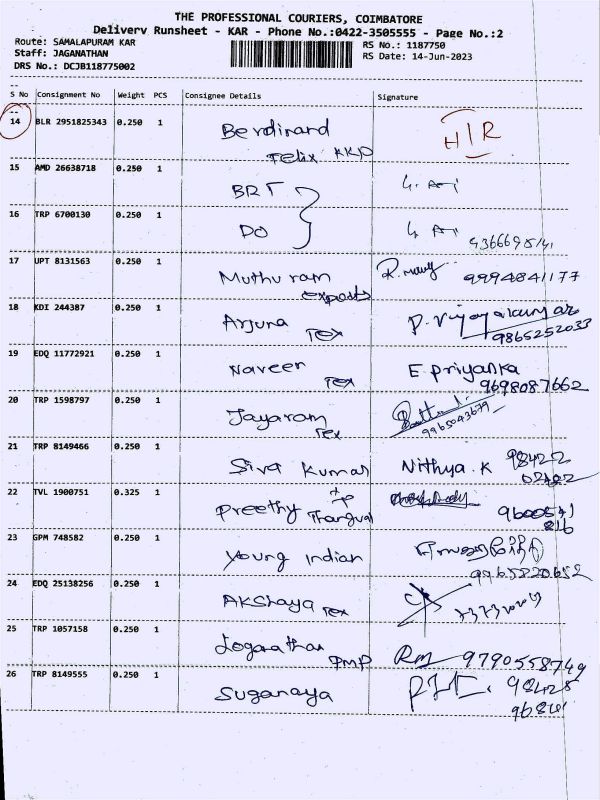 THE PROFESSIONAL COURIERS, COIMBATORE
Delivery Runsheet - KAR - Phone No.:0422-3505555 - Page No.:2
Route: SAMALAPURAM KAR
RS No.: 1187750
Staff: JAGANATHAN
RS Date: 14-Jun-2023
DRS No.: DCJB118775002
S No Consignment No Weight PCS Consignee Details Signature
14 BLR 2951825343 0.250 1 Berdinard H/R
Felix KKP
15 AMD 26638718 0.250 1 BRT
16 TRP 6700130 0.250 1 DO
17 UPT 8131563 0.250 1 Muthu ram 9994841177
exports
18 KDI 244387 0.250 1 Arjuna P. Vijayakumar
Tex 9865252033
19 EDQ 11772921 0.250 1 Naveen E Priyanka
Tex 9698087662
20 TRP 1598797 0.250 1 Jayaram
Tex 9965043679
21 TRP 8149466 0.250 1 Siva Kumar Nithya.K 98422
02422
22 TVL 1900751 0.325 1 Preethy Thangval 9600541
816
23 GPM 748582 0.250 1 Young Indian
9965820652
24 EDQ 25138256 0.250 1 Akshaya Tex
25 TRP 1057158 0.250 1 Loganathan
PMP 9790558749
26 TRP 8149555 0.250 1 Suganaya 98428